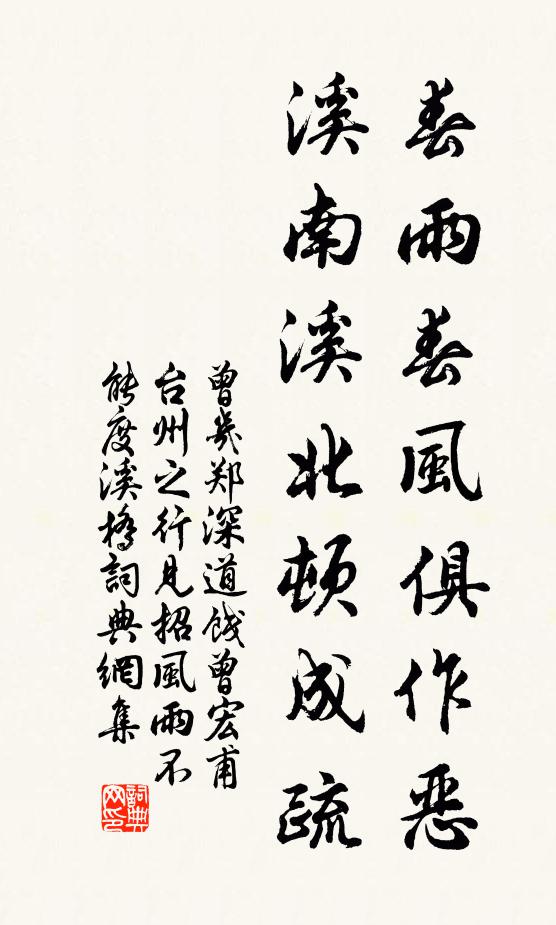 春雨春風俱作惡
溪南溪北頓成疏
曾幾郑深道餞曾宏甫
台州之行見招風雨不
能度溪橋詞典網集
詞典网印